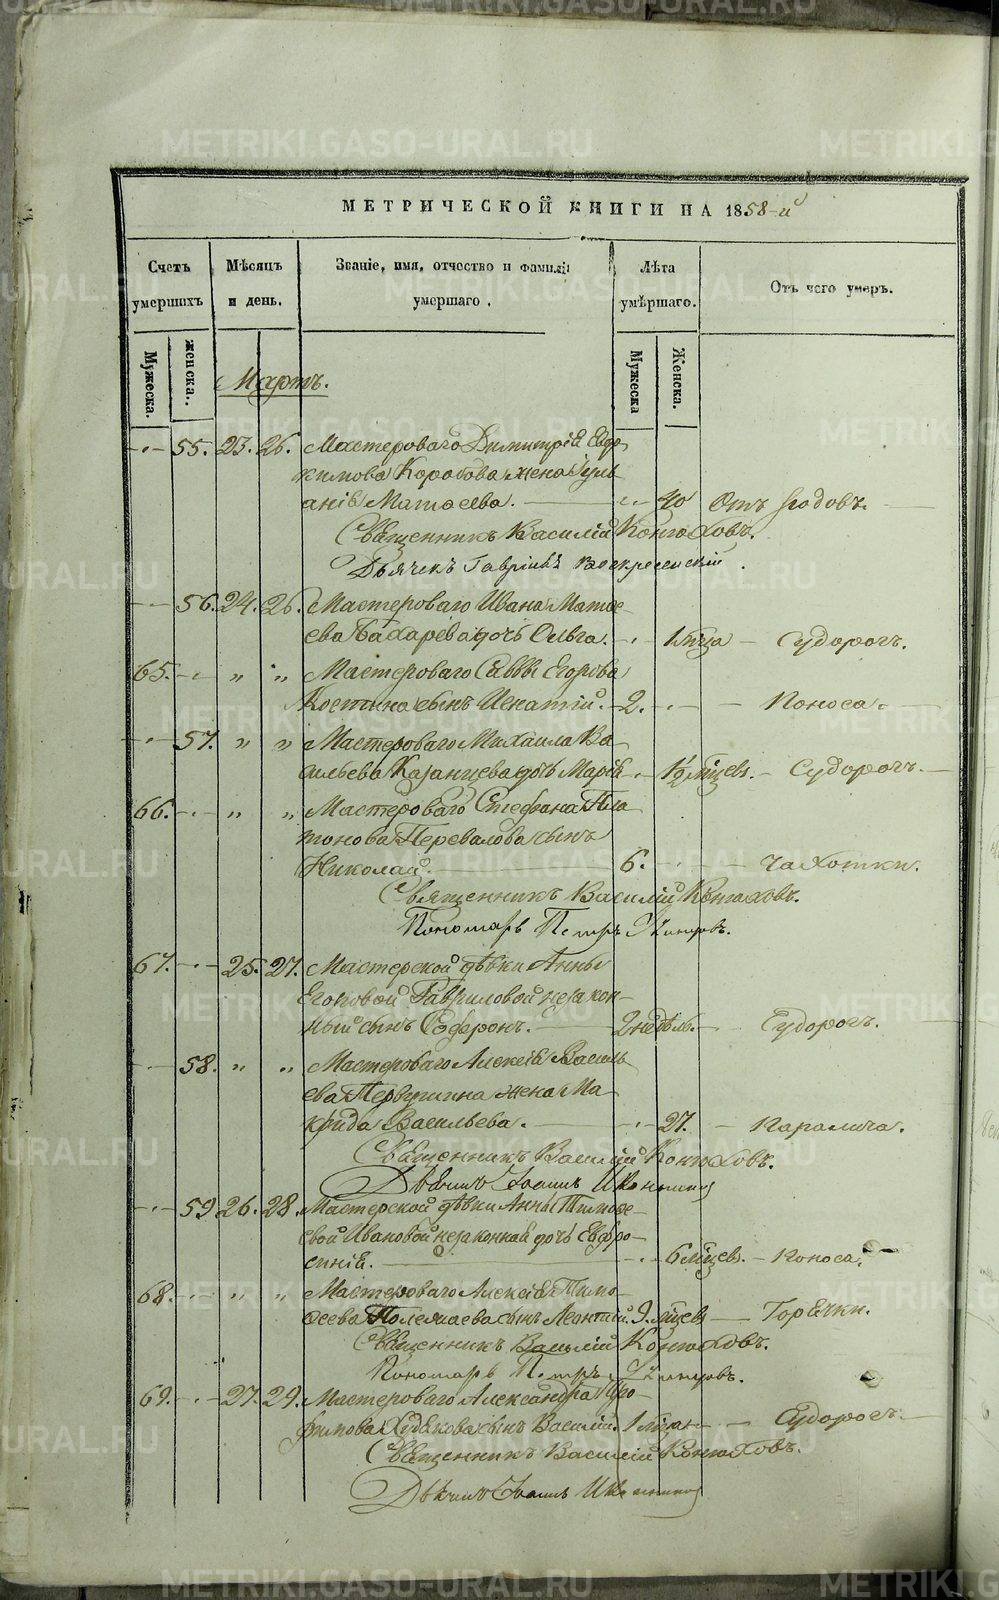 МЕТРИЧЕСКОЙ КНИГИ НА 1858-й
Счетъ умершихъ
Мѣсяцъ и день.
Званіе, имя, отчество и фамилія умершаго.
Лѣта умѣршаго.
Отъ чего умеръ.
Мужеска.
женска..
Мужеска
Женска.
Мартъ.
55. 23. 26. Мастероваго Димитрія Евдо-
кимова Коробова жена Іули-
анія Матѳеева. 40 Отъ родовъ.
Священникъ Василій Конюховъ.
Дьячекъ Гавріилъ Воскресенскій.
56. 24. 26. Мастероваго Ивана Матѳе-
ева Бахарева дочь Ольга. Судорогъ.
65. „ „ Мастероваго Саввы Егорова
Костина сынъ Игнатій. 2. Поноса.
57. „ „ Мастероваго Михаила Ва-
сильева Казанцева дочь Марія Судорогъ.
66. „ „ Мастероваго Стефана Пла-
тонова Перевалова сынъ
Николай. 6. Чахотки.
Священникъ Василій Конюховъ.
Пономарь Петръ
67. 25. 27. Мастерской дѣвки Анны
Гавриловой незакон-
ный сынъ Софронъ. 2 недѣль. Судорогъ.
58. „ „ Мастероваго Алексія Василь-
ева Первушина жена Ма-
крида Васильева. 27. Паралича.
Священникъ Василій Конюховъ.
59 26. 28. Мастерской дѣвки Анны Тимоѳе-
евой Ивановой незаконная дочь Евфро-
синія. 6 мѣсцевъ. Поноса.
68. „ „ Мастероваго Алексія Тимо-
ѳеева сынъ Леонтій. 9. мѣсцевъ Горячки.
Священникъ Василій Конюховъ.
Пономарь Петръ
69. 27. 29. Мастероваго Александра Тро-
фимова Худякова сынъ Василій. 1 Судорогъ.
Священникъ Василій Конюховъ.
METRIKI.GASO-URAL.RU